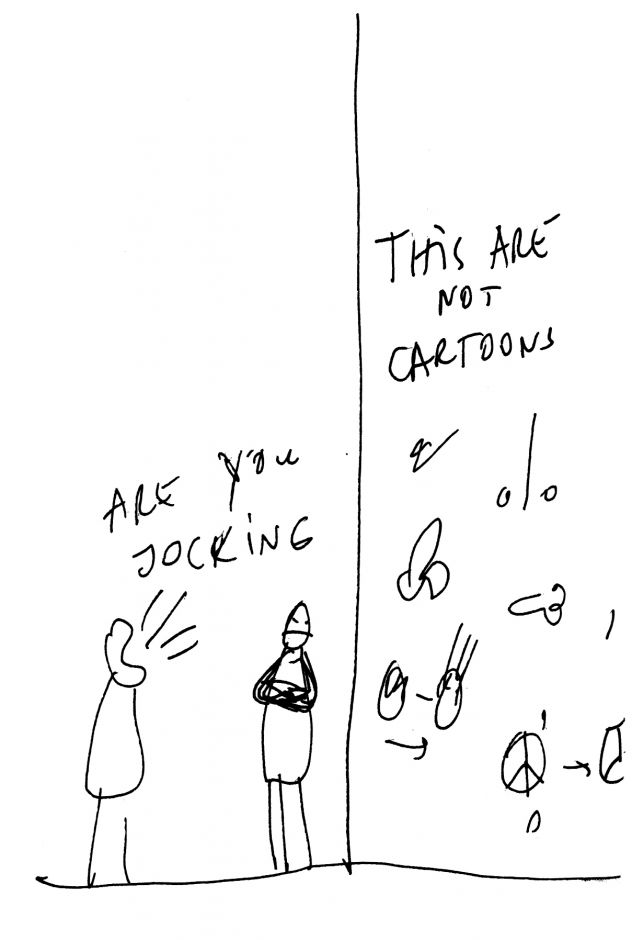 ARE YOU
JOCKING
THIS ARE
NOT
CARTOONS